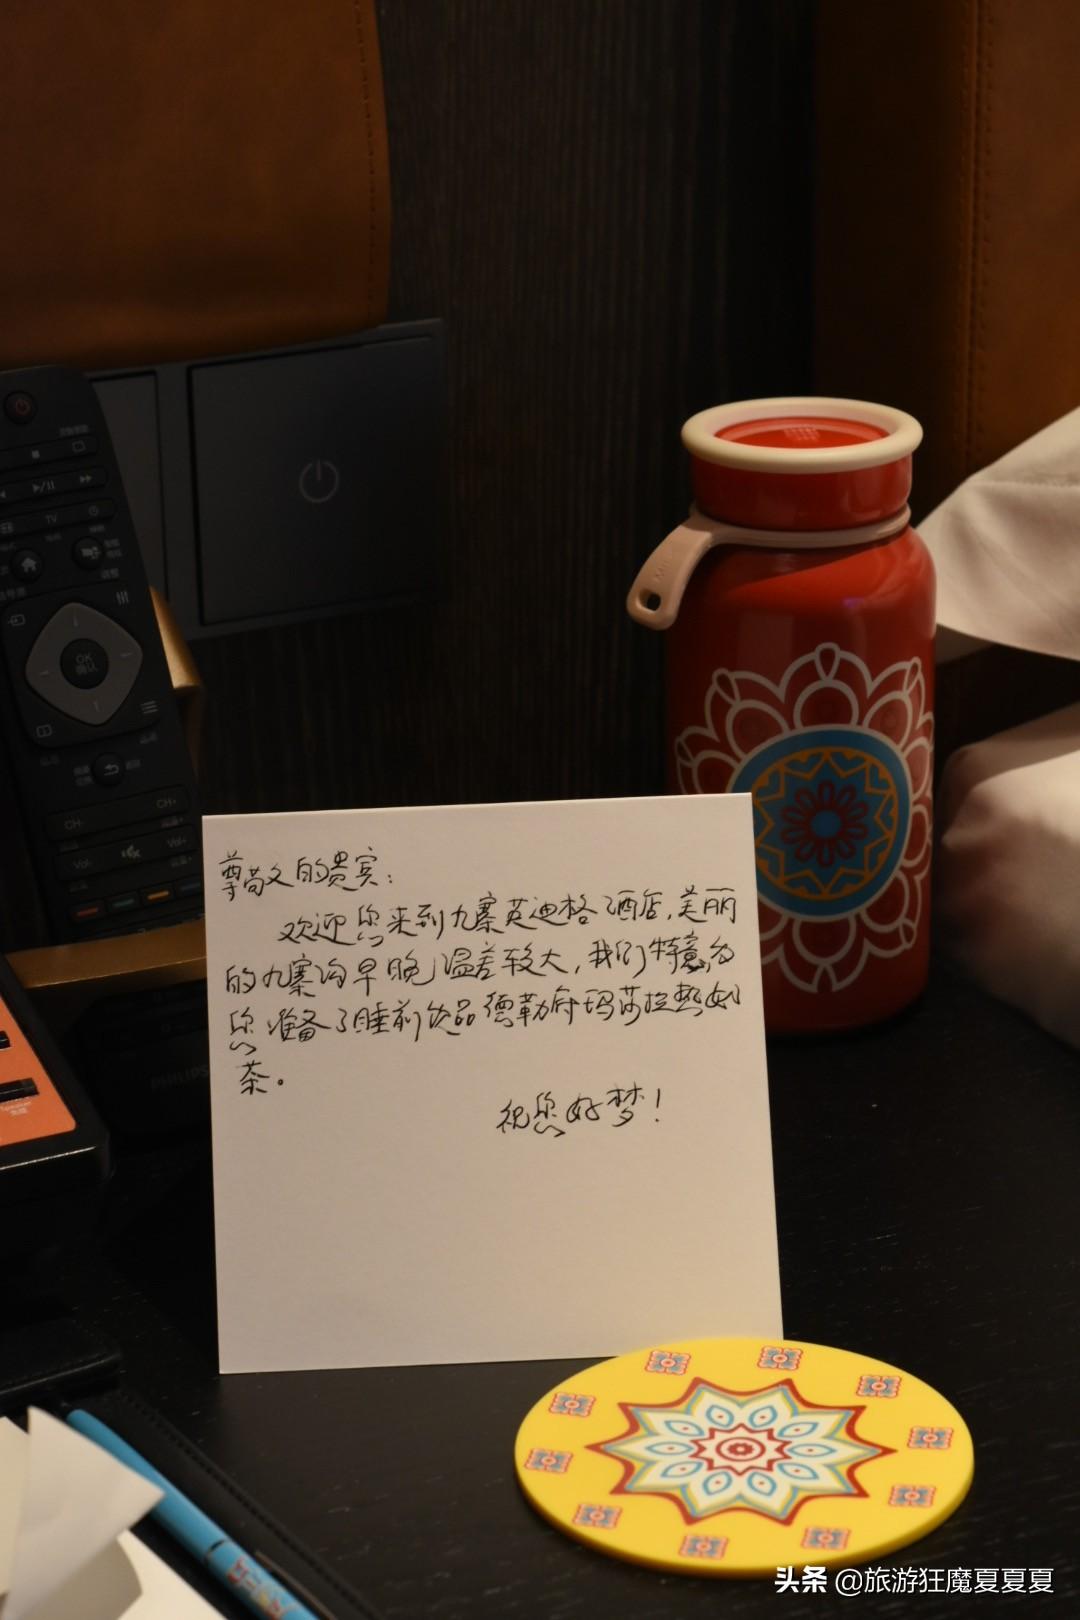 尊敬的贵宾：
欢迎您来到九寨英迪格酒店，美丽
的九寨沟早晚温差较大，我们特意为
您准备了睡前饮品德勒府玛莎拉热奶
茶。
祝您好梦！
TV
OK
确认
CH+
CH-
Vol+
Vol-
PHILIPS
Speaker
头条 @旅游狂魔夏夏夏